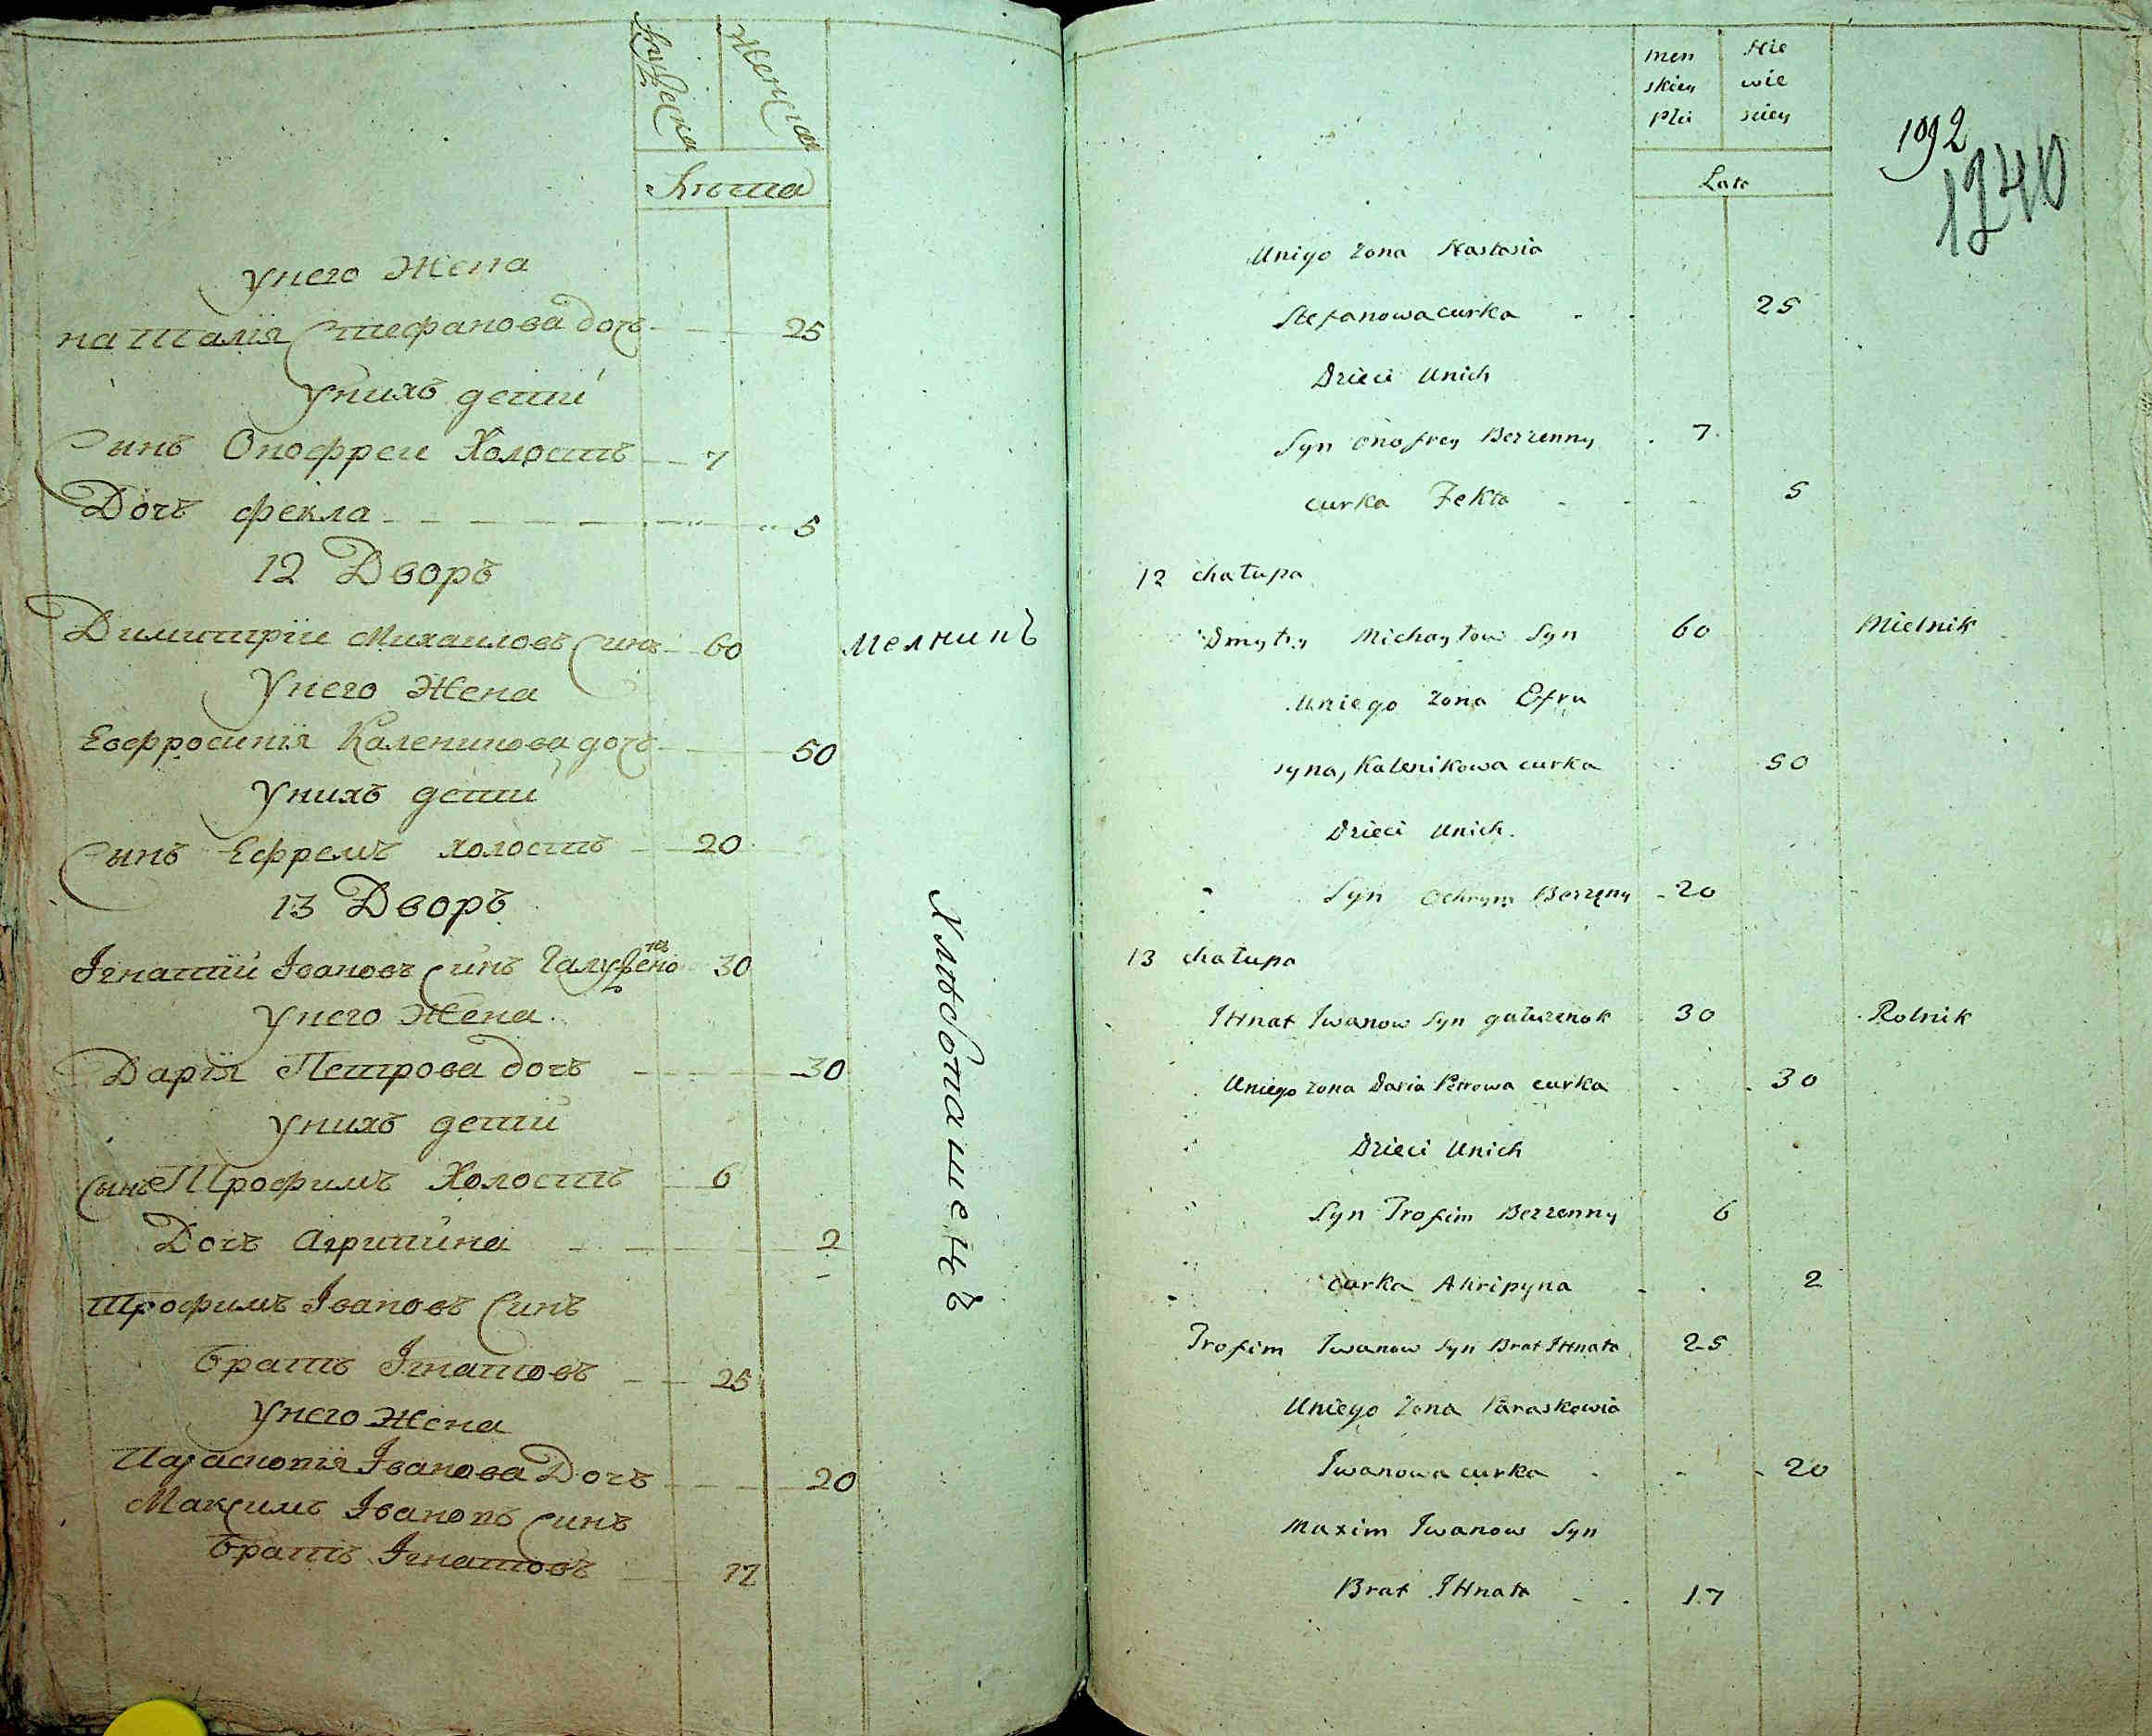 Мужеска
Женска
Лѣта
Унего Жена
наталія Стефанова дочъ 25
Унихъ дети
Сынъ Онофреи Холостъ 7
Дочъ фекла 5
12 Дворъ
Димитріи Михаиловъ Синъ 60 Мелникъ
Унего Жена
Евфросинія Каленикова дочъ 50
Унихъ дети
Сынъ Ефремъ холостъ 20
13 Дворъ
Ігнатіи Івановъ Синъ 30
Хлѣбопашецъ
Унего Жена
Дарія Петрова дочъ 30
Унихъ дети
Сынъ Трофимъ Холостъ 6
Дочъ Агрипина 2
Трофимъ Івановъ Синъ
братъ Ігнатовъ 25
Унего Жена
Параскопія Іванова Дочъ 20
Максимъ Івановъ Синъ
братъ Ігнатовъ 17
men Nie
skiey wie
Płci sciey
Lata
1092
1240
Unigo zona Nastasia
Stefanowa curka 25
Dzieci Unich
Syn Onofrey Bezzenny 7
curka Fekła 5
12 chałupa
Dmytry Michayłow Syn 60 Mielnik
Uniego zona Efru
syna, Kalenikowa curka 50
Dzieci Unich.
Syn Ochrym Bezzeny 20
13 chałupa
IHnat Iwanow Syn gałuzenok 30 Rolnik
Uniego zona Daria Petrowa curka 30
Dzieci Unich
Syn Trofim Bezzenny 6
curka Ahripyna 2
Trofim Iwanow Syn Brat IHnata 25
Uniego zona Paraskowia
Iwanowa curka 20
Maxim Iwanow Syn
Brat IHnata 17